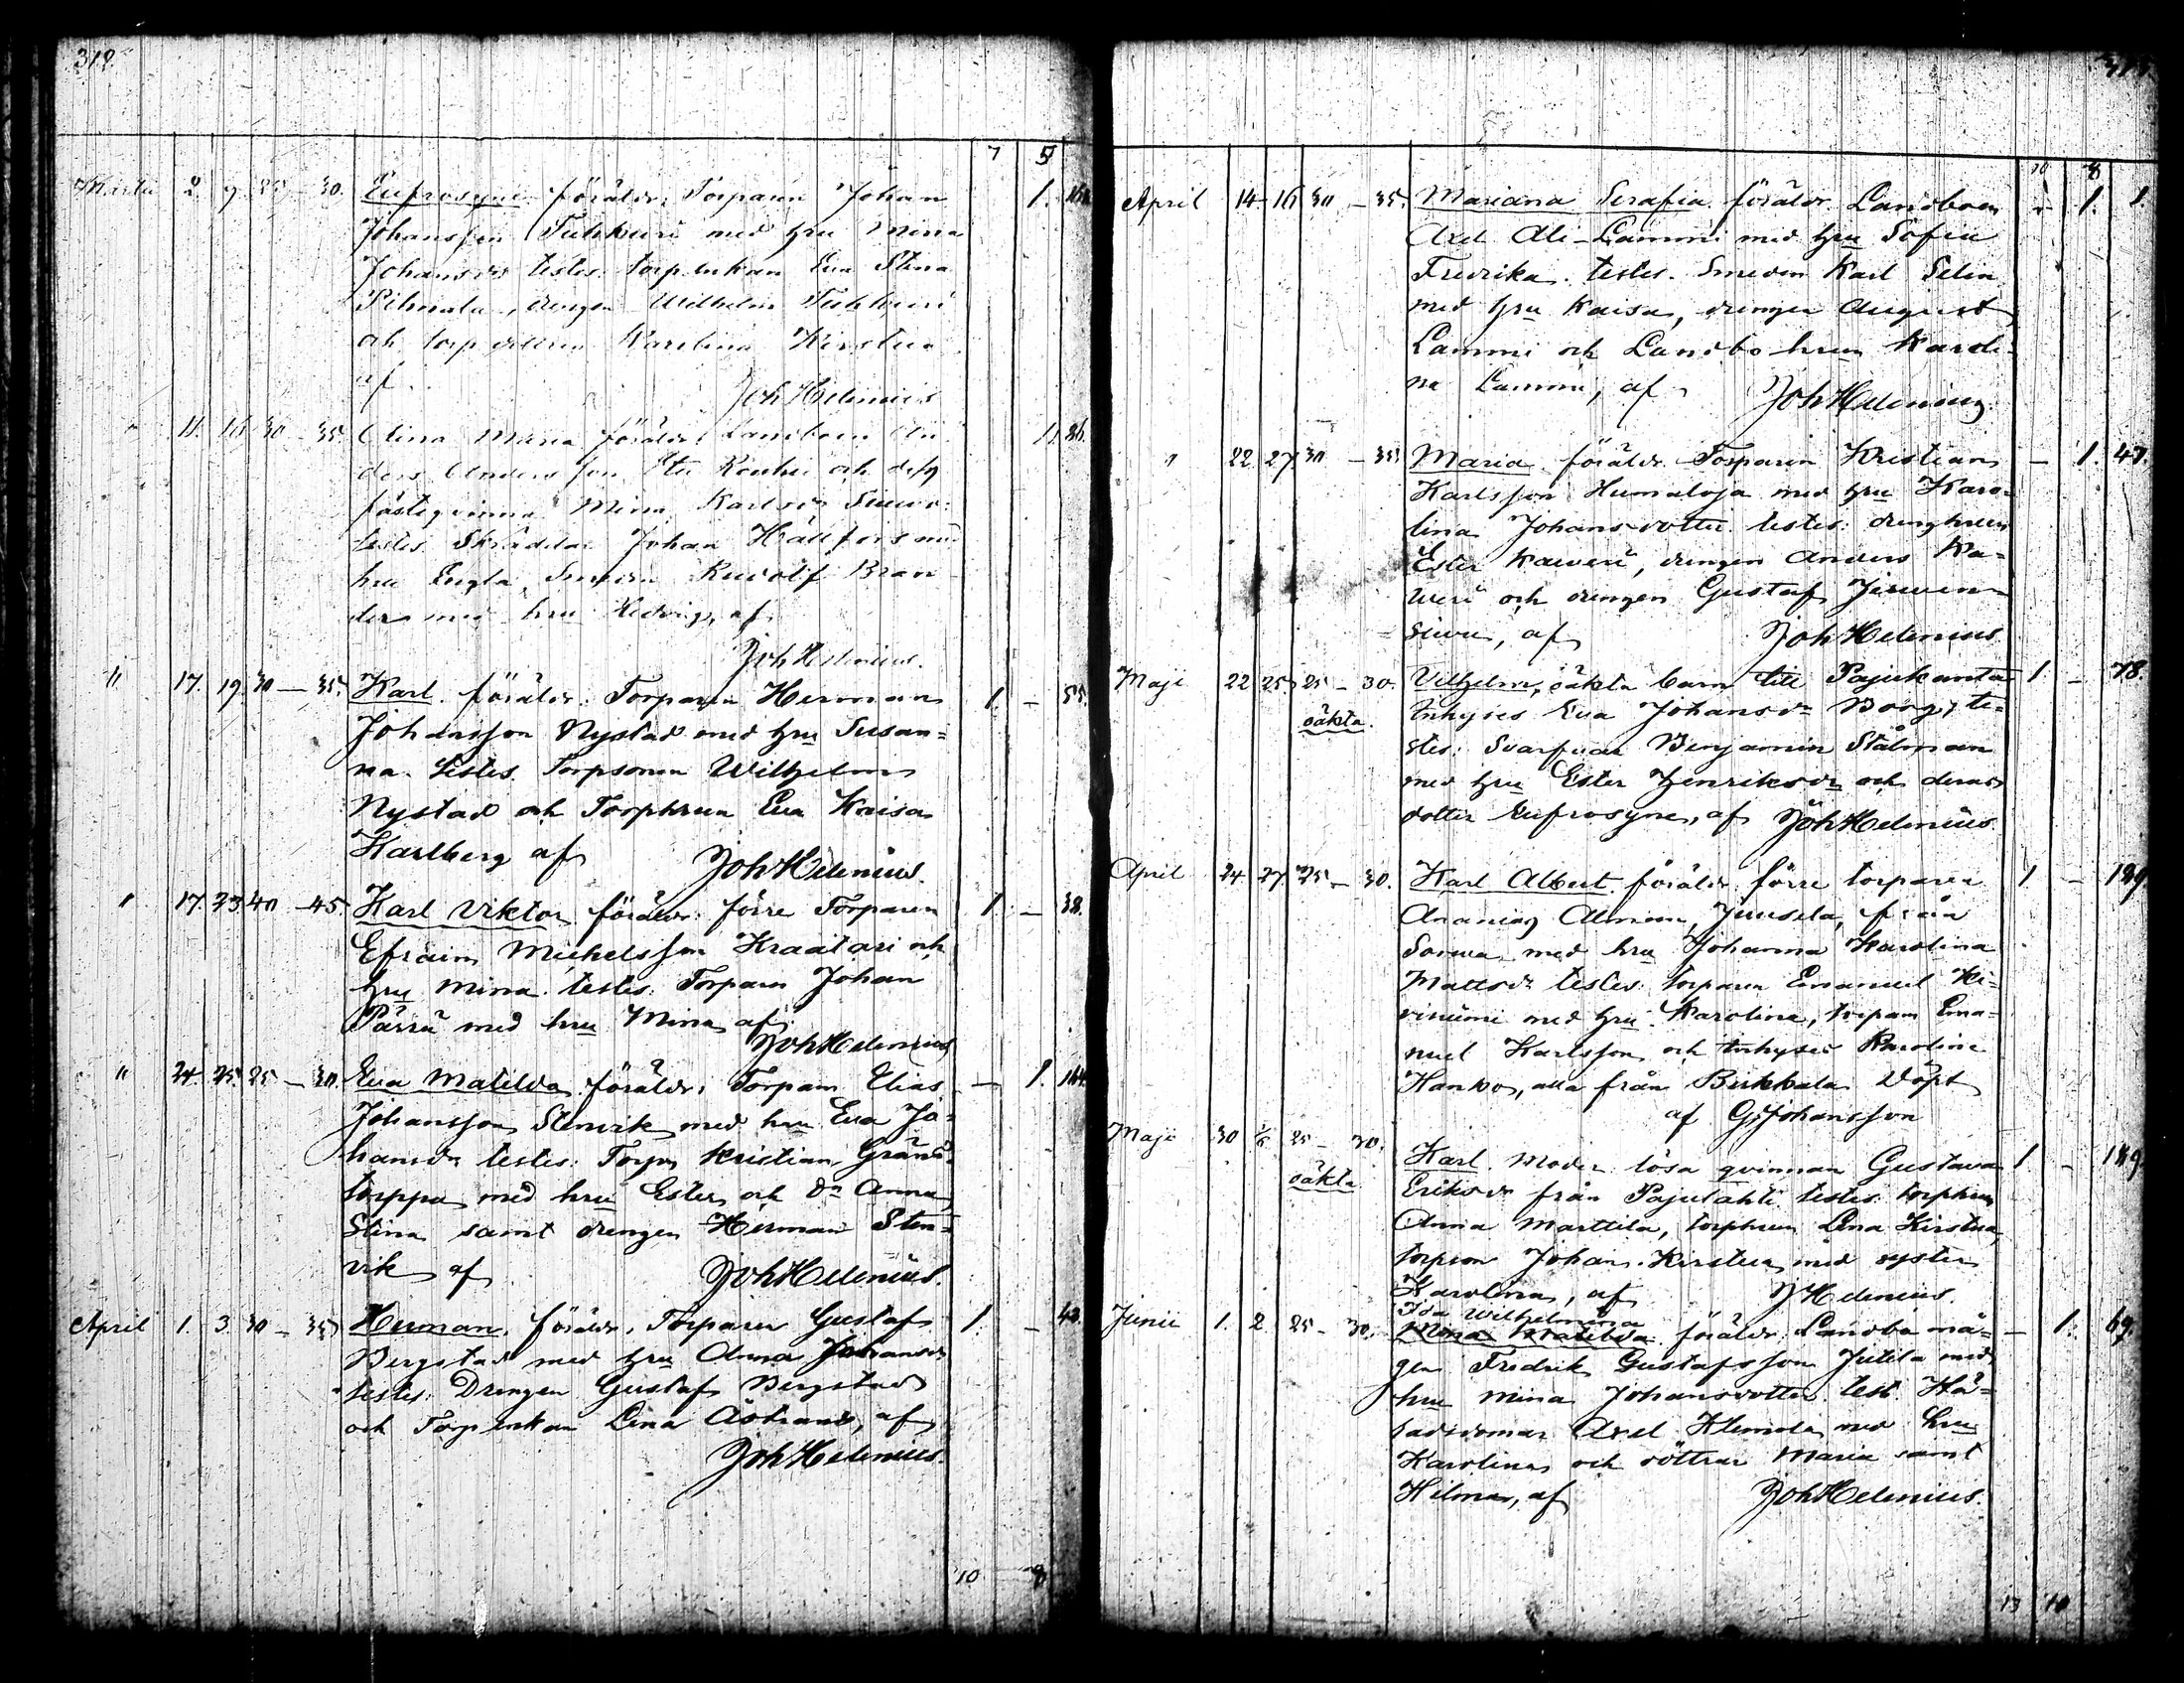 312.
7 5
Martii 2. 9. 25 - 30. Eufrosyne föräldr. Torparen Johan 1.
Johansson Tuhkuri med hru Mina
Johansdr testes: torp.enkan Eva Stina
Pihnala, drengen Wilhelm Tuhkuri
och torp.dottren Karolina Kirstua
af
Joh Helenius
" 11. 16. 30 - 35. Mina Maria föräldr. Landboen An- 1. 26.
ders Andersson och dess
fästeqvinna Mina Karlsdr
testes Skräddar Johan Hällfors med
hru Engla, Smeden Rudolf Bran
ders med hru Hedvig, af
Joh Helenius.
" 17. 19. 30 - 35. Karl. föräldr. Torparen Herman 1. - 55.
Johansson Nystad med hru Susan=
na. testes. Torpsonen Wilhelm
Nystad och Torphrun Eva Kaisa
Karlberg af
Joh Helenius.
" 17. 23. 40 - 45. Karl Viktor föräldr: förre Torparen 1. - 38.
Efraim Michelsson Kraatari och
hru Mina. testes: Torparen Johan
Pärrü med hru Mina, af
Joh Helenius
" 24. 25. 25 - 30. Eva Matilda föräldr. Torparn Elias - 1. 144.
Johansson Stenvik med hru Eva Jo=
hansdr testes: Torpn Kristian Gränä=
torppa med hru Ester och dn Anna
Stina samt drengen Herman Sten=
vik af Joh Helenius.
April 1. 3. 30 - 35. Herman. föräldr. Torparen Gustaf 1. - 43.
Bergstad med hru Anna Johansdr
testes: Drengen Gustaf Bergstad
och Torpenkan Lina Åstrand, af
Joh Helenius.
10 8
10 8
April 14 16 30 - 35. Mariana Serafia föräldr. Landboen - 1. 1.
Axel Ali-Lammi med hru Sofia
Fredrika. testes. Smeden Karl Selin
med hru Kaisa, drengen August
Lammi och Landbo hrun Karoli-
na Lammi, af Joh Helenius
" 22 27 30 - 35 Maria. föräldr. Torparen Kristian - 1. 47.
Karlsson Humaloja med hru Karo-
lina Johansdotter testes: drenghrun
Ester Kaweri, drengen Anders Ka=
weri och drengen Gustaf Jerwen=
siwu, af Joh Helenius
Maji 22 25. 25 - 30. Vilhelm, oäkta barn till Pajukanta 1. - 78.
oäkta. Inhyses Eva Johansdr Borg, te=
stes: Svarfvar Benjamin Stålman
med hru Ester Henriksdr och deras
dotter Eufrosyne, af Joh Helenius.
April 24 27. 25 - 30. Karl Albert. föräldr. förre torparen 1 - 129.
Ananias Juusela, från
med hru Johanna Karolina
Mattsdr testes: torparen Emanuel Ki=
viniemi med hru Karolina, torparn Ema=
nuel Karlsson och Inhyses Karolina
Hanko, alla från Birkkala Döpt
af G. Johansson
Maji 30 25 - 30. Karl. Moder: lösa qvinnan Gustava 1 - 149.
oäkta Eriksdr från Pajulahti testes. torphrun
Anna Marttila, torphrun Lina Kirstua,
torpson Johan Kirstua med syster
Karolina, af J Helenius.
Ida Wilhelmina
Junii 1. 2 25 - 30. Mina Matilda föräldr. Landbo må= - 1. 69.
gen Fredrik Gustafsson Jutila med
hru Mina Johansdotter. test Hä=
radsdomar Axel Klemola med hru
Karolina och döttrar Maria samt
Hilma, af Joh Helenius.
13 10